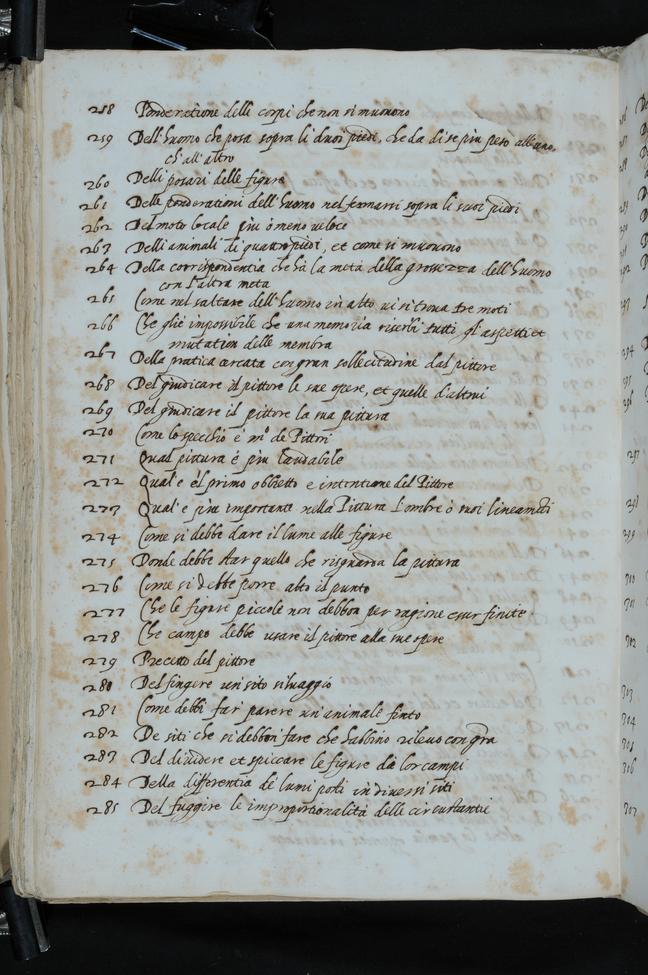 258 Ponderatione delli corpi che non si muovono
259 Dell'huomo che posa sopra li duoi piedi, che da di se piu peso all'uno,
ch'all'altro
260 Delli posari delle figure
261 Delle ponderationi dell'huomo nel fermarsi sopra li suoi piedi
262 Del moto locale più ò meno veloce
263 Delli animali di quattro piedi, et come si muovono
264 Della corrispondentia che hà la metà della grossezza dell'huomo
con l'altra meta
265 Come nel saltare dell'huomo in alto vi si trova tre moti
266 Che gliè impossibile che una memoria riserbi tutti gl'aspetti et
mutation delle membra
267 Della pratica cercata con gran sollecitudine dal pittore
268 Del giudicare il pittore le sue opere, et quelle d'altrui
269 Del giudicare il pittore la sua pittura
270 Come lo specchio è m.º de Pittori
271 Qual pittura è più laudabile
272 Qual'è il primo obbietto e intentione del Pittore
273 Qual'e piu importante nella Pittura l'ombre ò suoi lineamenti
274 Come si debbe dare il lume alle figure
275 Donde debbe star quello che risguarda la pittura
276 Come si debbe porre alto il punto
277 Che le figure piccole non debbon per ragione esser finite
278 Che campo debbe usare il pittore alla sue opere
279 Precetto del pittore
280 Del fingere un sito silvaggio
281 Come debbi far parere un'animale finto
282 De siti che si debbon fare che habbino rilevo con gra
283 Del dividere et spiccare le figure da lor campi
284 Della differentia de lumi posti in diversi siti
285 Del fuggire le improportionalità delle circustantie